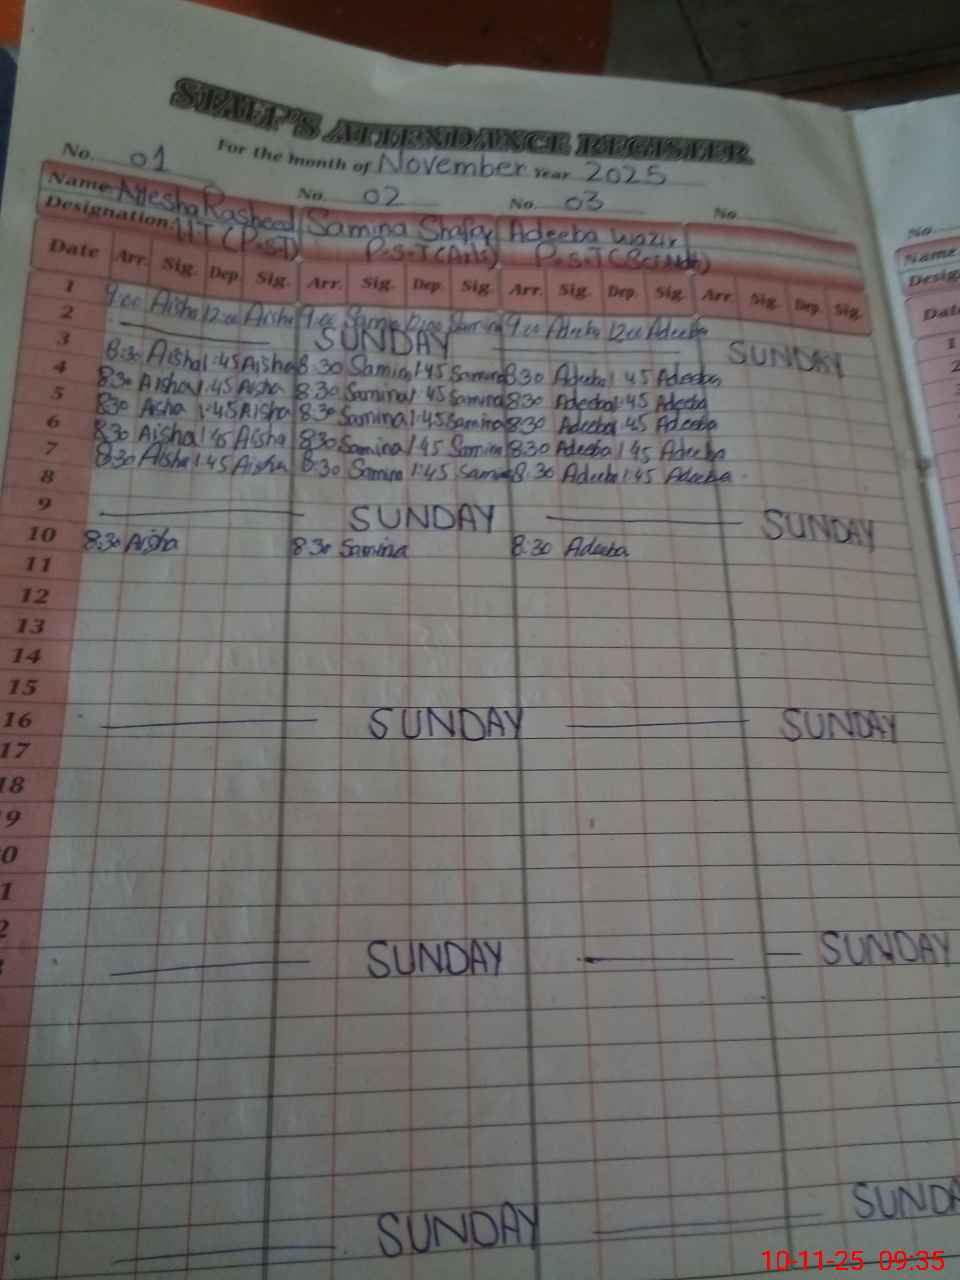 STAFF'S ATTENDANCE REGISTER
For the month of November Year 2025
No. 01 No. 02 No. 03 No.
Name Ayesha Rasheed Samina Shafay Adeeba Wazir
Designation (P.S.T) P.S.T (Arts) P.S.T
Date Arr. Sig. Dep. Sig. Arr. Sig. Dep. Sig. Arr. Sig. Dep. Sig. Arr. Sig. Dep. Sig.
1 9:00 Aisha 12:00 Aisha 9:00 Samina 12:00 Samina 9:00 Adeeba 12:00 Adeeba
2 SUNDAY SUNDAY
3 8:30 Aisha 1:45 Aisha 8:30 Samina 1:45 Samina 8:30 Adeeba 1:45 Adeeba
4 8:30 Aisha 1:45 Aisha 8:30 Samina 1:45 Samina 8:30 Adeeba 1:45 Adeeba
5 8:30 Aisha 1:45 Aisha 8:30 Samina 1:45 Samina 8:30 Adeeba 1:45 Adeeba
6 8:30 Aisha 1:45 Aisha 8:30 Samina 1:45 Samina 8:30 Adeeba 1:45 Adeeba
7 8:30 Aisha 1:45 Aisha 8:30 Samina 1:45 Samina 8:30 Adeeba 1:45 Adeeba
8
9 SUNDAY SUNDAY
10 8:30 Aisha 8:30 Samina 8:30 Adeeba
11
12
13
14
15
16 SUNDAY SUNDAY
17
18
9
0
1
2
SUNDAY SUNDAY
SUNDAY SUNDA
No.
Name
Desig
Date
1
2
10-11-25 09:35